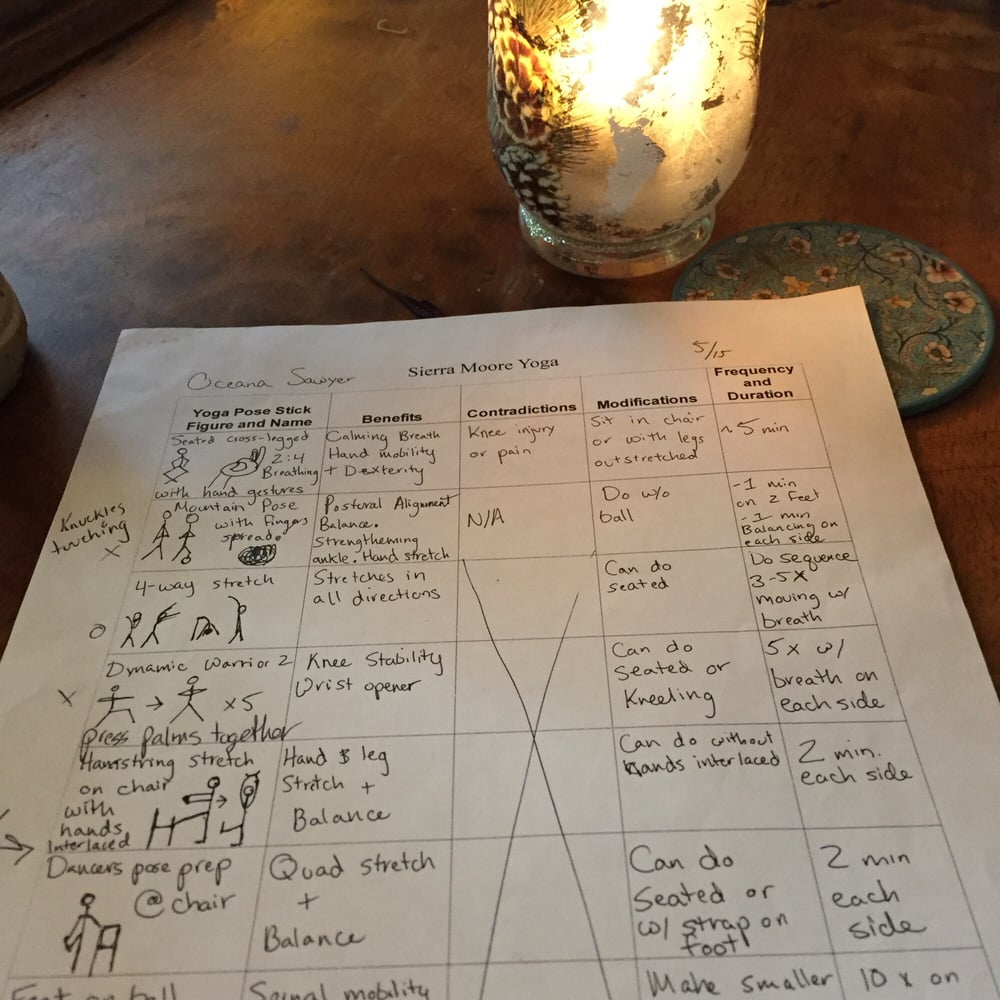 5/15
Oceana Sawyer
Sierra Moore Yoga
Yoga Pose Stick
Figure and Name
Benefits
Contradictions
Modifications
Frequency
and
Duration
Seated cross-legged
2:4
Breathing
with hand gestures
Calming Breath
Hand mobility
+ Dexterity
Knee injury
or pain
Sit in chair
or with legs
outstretched
~5 min
Knuckles
touching
x
Mountain Pose
with fingers
spread.
Postural Alignment
Balance.
Strengtheming
ankle. Hand stretch
N/A
Do w/o
ball
-1 min
on 2 feet
-1 min
Balancing on
each side
4-way stretch
Stretches in
all directions
Can do
seated
Do sequence
3-5x
moving w/
breath
x
Dynamic Warrior 2
→ x5
press palms together
Knee Stability
Wrist opener
Can do
Seated or
Kneeling
5x w/
breath on
each side
Hamstring stretch
on chair
with
hands
Interlaced
Hand & leg
Stretch +
Balance
Can do without
hands interlaced
2 min.
each side
Dancers pose prep
@ chair
Quad stretch
+
Balance
Can do
Seated or
w/ strap on
foot
2 min
each
side
Feet on ball
Spinal mobility
Make smaller
10 x on